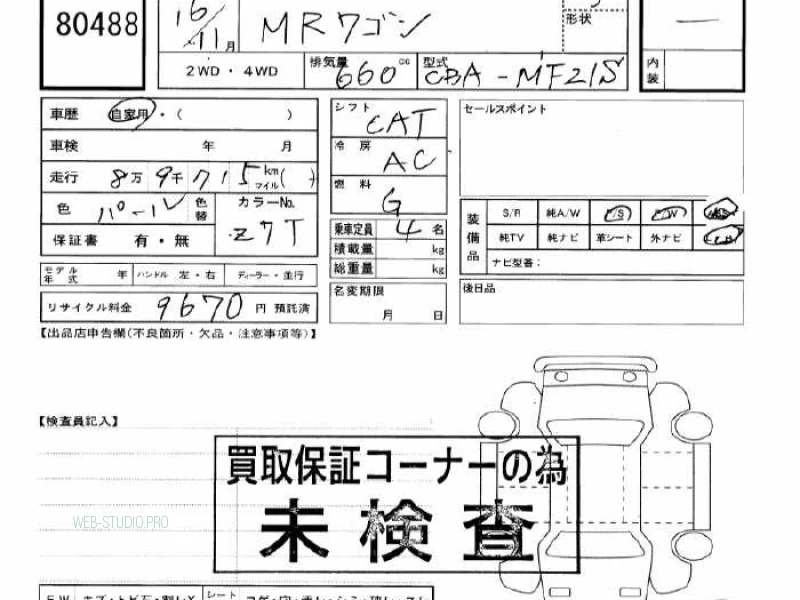 80488
16/11 月 MRワゴン 形状
2WD・4WD 排気量 660 cc 型式 CBA-MF21S 内装
車歴 自家用・( )
車検 年 月
走行 8万9千715 km マイル( )
色 パール 色替 カラーNo. Z7T
保証書 有・無
モデル年式 年 ハンドル 左・右 ディーラー・並行
リサイクル料金 9670 円 預託済
シフト CAT
冷房 AC
燃料 G
乗車定員 4 名
積載量 kg
総重量 kg
名変期限
月 日
セールスポイント
装備品 S/R 純A/W P/S P/W
純TV 純ナビ 革シート 外ナビ
ナビ型番:
後日品
【出品店申告欄(不良箇所・欠品・注意事項等)】
【検査員記入】
買取保証コーナーの為
未検査
WEB-STUDIO.PRO